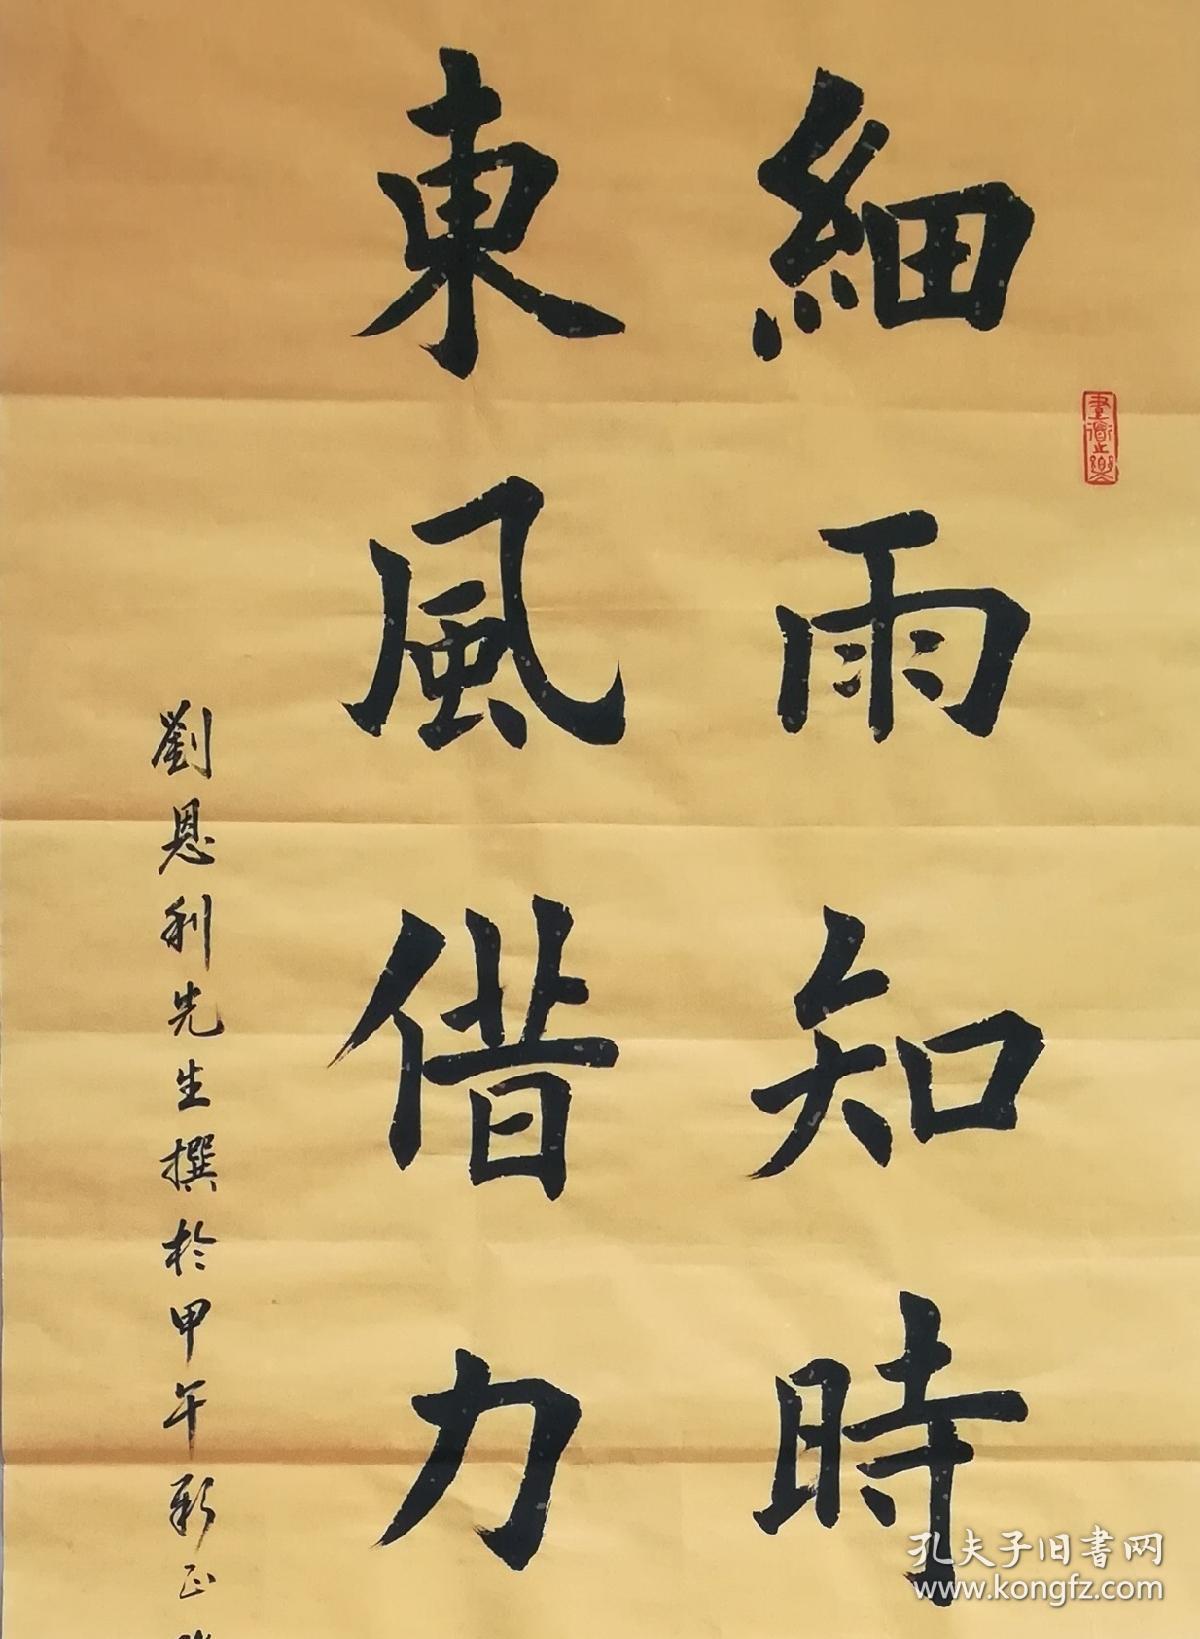 細雨知時
東風借力
劉恩利先生撰於甲午新正
孔夫子旧書网
www.kongfz.com